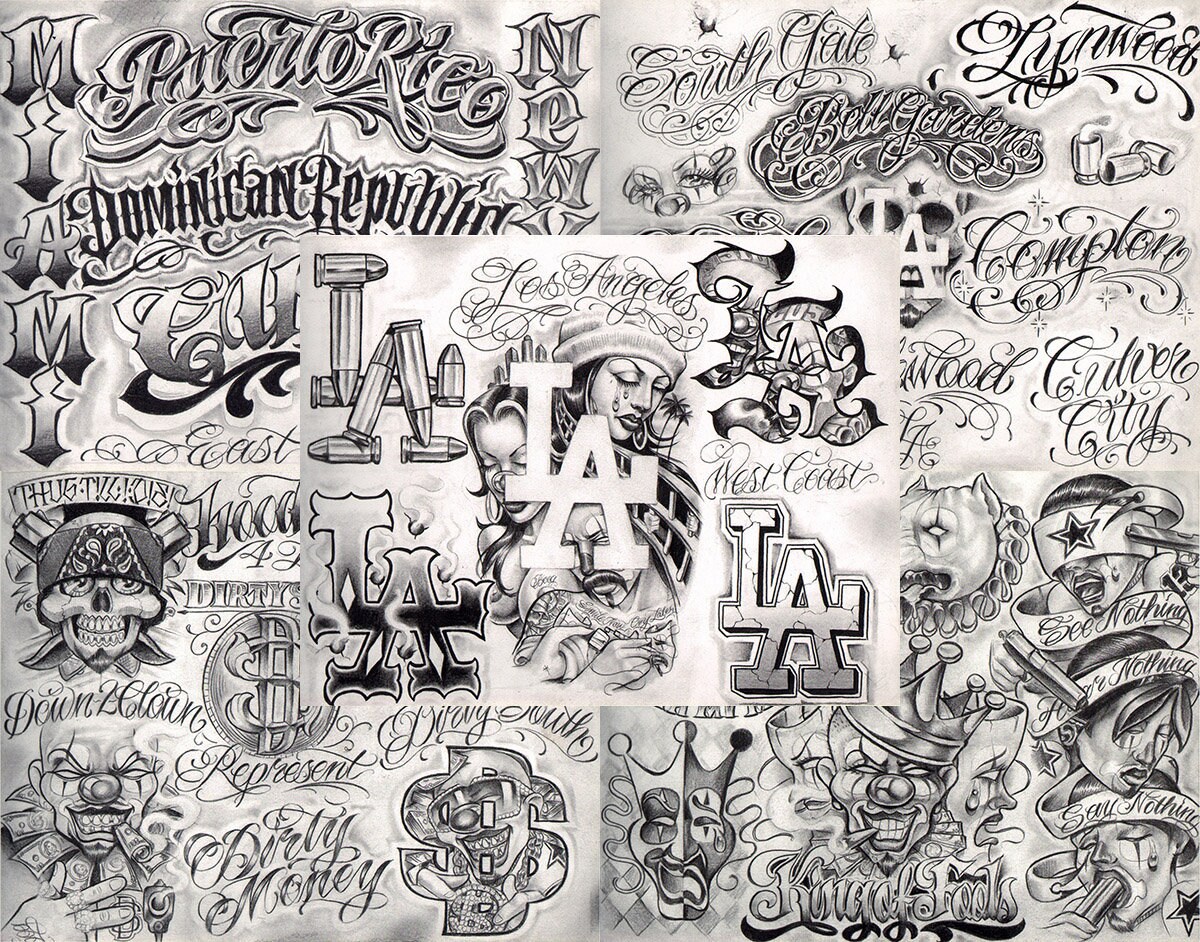 MiAMi
Puerto Rico
New
Dominican Republic
East
South Gate
Lynwood
Bell Gardens
LA
Compton
wood
Culver
City
LA
Los Angeles
LA
LA
LA
West Coast
LA
LA
THUG TILL I DIE
Down 2 Clown
DIRTY
Represent
Dirty South
Dirty
Money
See Nothing
Hear Nothing
Say Nothing
King of Fools